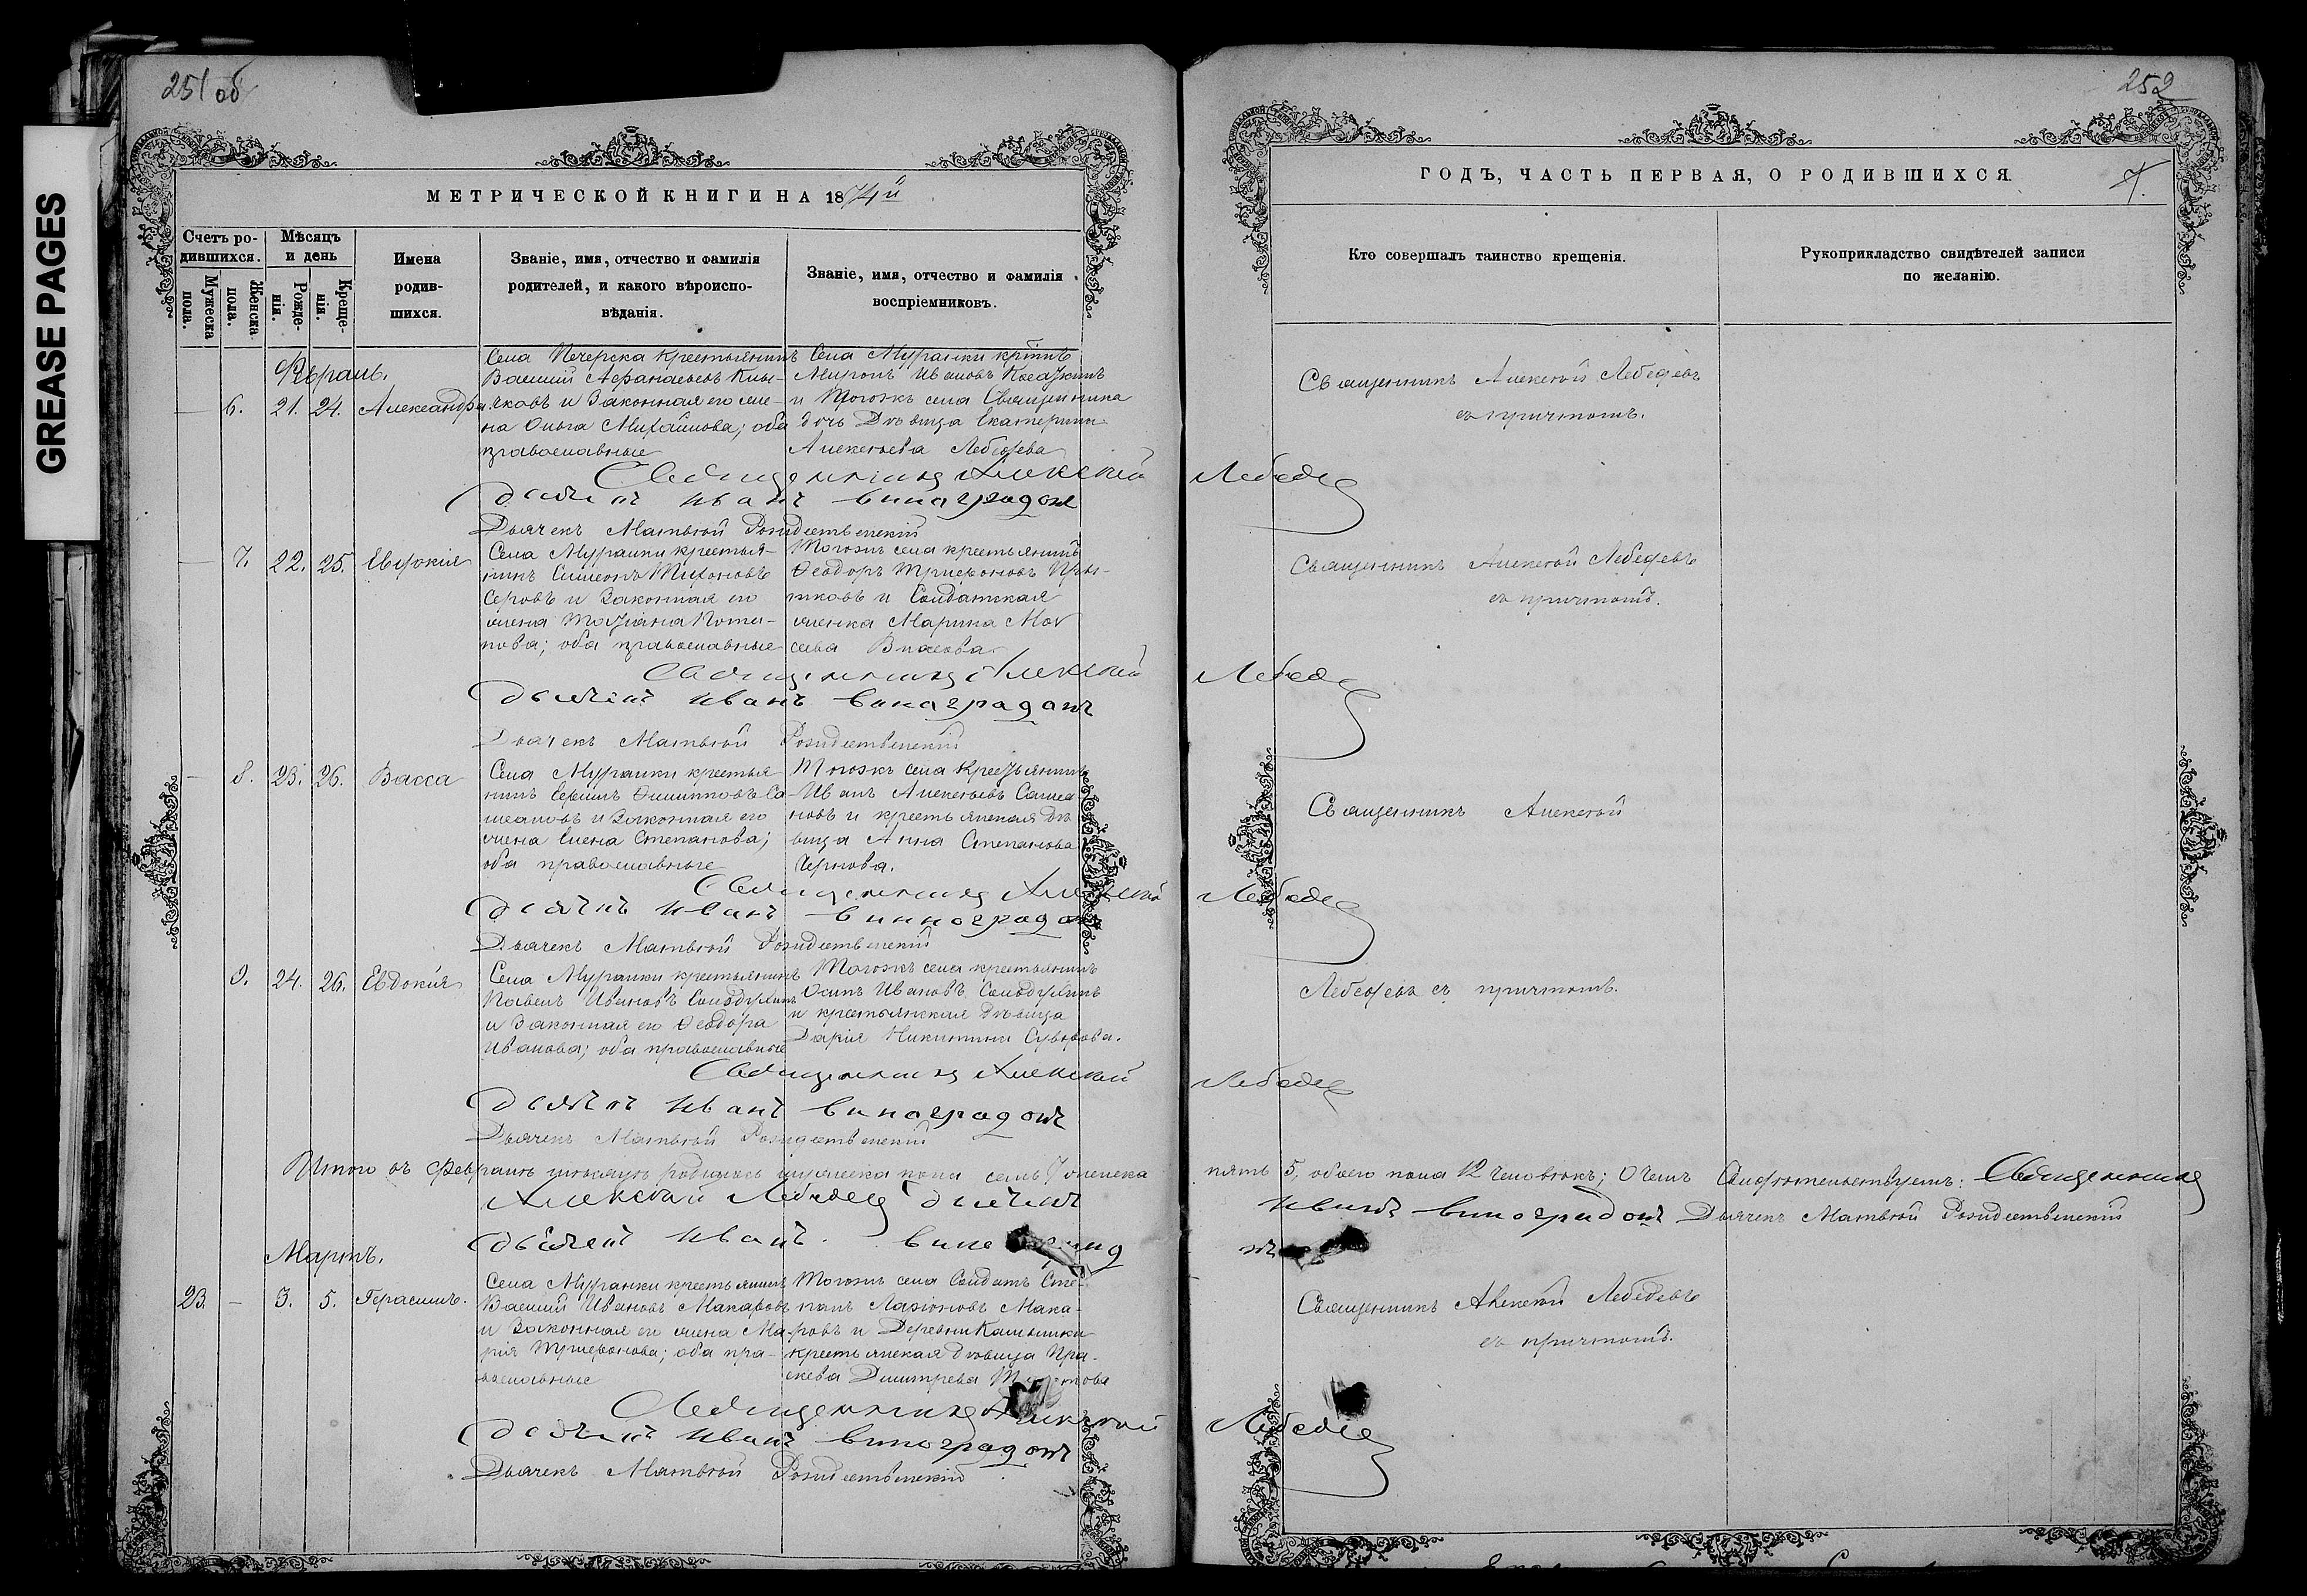 GREASE PAGES
251 об
252
МЕТРИЧЕСКОЙ КНИГИ НА 1874й
ГОДЪ, ЧАСТЬ ПЕРВАЯ, О РОДИВШИХСЯ.
7.
Счетъ ро-
дившихся.
Мужеска
пола.
Женска
пола.
Мѣсяцъ
и день
Рожде-
нія.
Креще-
нія.
Имена
родив-
шихся.
Званіе, имя, отчество и фамилія
родителей, и какого вѣроиспо-
вѣданія.
Званіе, имя, отчество и фамилія
воспріемниковъ.
Кто совершалъ таинство крещенія.
Рукоприкладство свидѣтелей записи
по желанію.
Февраль.
— 6. 21. 24. Александра
Села Печерска крестьянинъ
Василий Афанасьевъ Кня-
зковъ и Законная его же-
на Ольга Михайлова; оба
православные
Села Муранки
Миронъ Ивановъ
и Тогожъ села Священника
дочь Дѣвица Екатерина
Алексѣева Лебедева
Священникъ Алексѣй Лебедевъ
съ причтомъ.
Священникъ Алексѣй Лебедевъ
Дьячекъ Иванъ Виноградовъ
Дьячекъ Матвѣй Рождественскій
— 7. 22. 25. Евдокія
Села Муранки крестья-
нинъ Симеонъ Тихоновъ
Серовъ и Законная его
жена Татіана Пота-
пова; оба православные
Тогожъ села крестьянинъ
Ѳеодоръ Трифоновъ Пры-
тковъ и Солдатская
женка Марина Мов
сева Власова
Священникъ Алексѣй Лебедевъ
съ причтомъ.
Священникъ Алексѣй Лебедевъ
Дьячекъ Иванъ Виноградовъ
Дьячекъ Матвѣй Рождественскій
— 8. 23. 26. Васса
Села Муранки крестья
нинъ Филипповъ Са-
и Законная его
жена Елена Степанова;
оба православные
Тогожъ села Крестьянинъ
Иванъ Алексѣевъ
новъ и крестьянская Дѣ
вица Анна Степанова
Чернова.
Священникъ Алексѣй
Священникъ Алексѣй Лебедевъ
Дьячекъ Иванъ Винноградовъ
Дьячекъ Матвѣй Рождественскій
9. 24. 26. Евдокія
Села Муранки крестьянинъ
Павелъ Ивановъ Солодухинъ
и Законная его Ѳеодора
Иванова; оба православные
Тогожъ села крестьянинъ
Осипъ Ивановъ Солодухинъ
и крестьянская Дѣвица
Дарія Никитина Суворова.
Лебедевъ съ причтомъ.
Священникъ Алексѣй Лебедевъ
Дьячекъ Иванъ Виноградовъ
Дьячекъ Матвѣй Рождественскій
Итого въ Февралѣ мѣсяцѣ родилось мужеска пола семь 7 женска пять 5, обоего пола 12 человѣкъ; О чемъ Свидѣтельствуетъ: Священникъ
Алексѣй Лебедевъ Дьячекъ Иванъ Виноградовъ Дьячекъ Матвѣй Рождественскій
Дьячекъ Иванъ
Мартъ.
23. — 3. 5. Герасимъ.
Села Муранки крестьянинъ
Василий Ивановъ Макаровъ
и Законная его жена Ма-
рія Трифонова; оба пра-
вославные
Тогожъ села Солдатъ Сте-
панъ Ларіоновъ Мака-
ровъ и Деревни Камышки
крестьянская дѣвица Пра-
скева Димитрева
Священникъ Алексѣй Лебедевъ
съ причтомъ.
Священникъ Алексѣй Лебедевъ
Дьячекъ Иванъ Виноградовъ
Дьячекъ Матвѣй Рождественскій